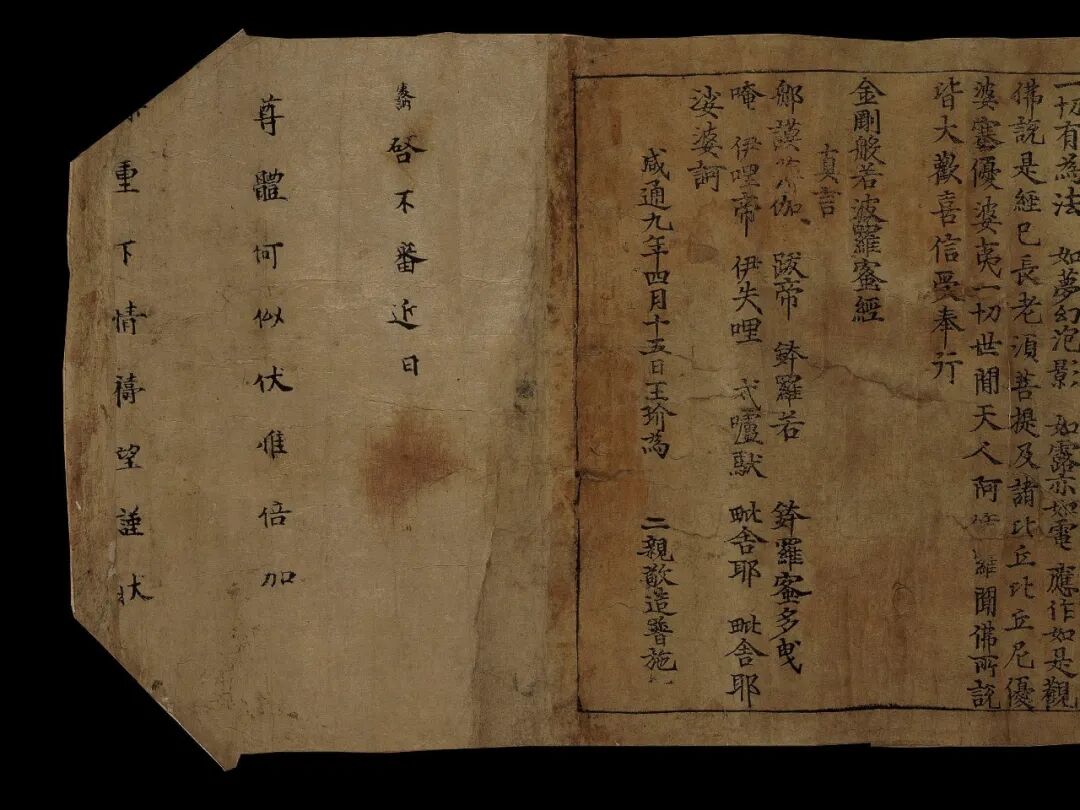 一切有為法 如夢幻泡影 如露亦如電 應作如是觀
佛說是經已長老須菩提及諸比丘比丘尼優
婆塞優婆夷一切世間天人阿脩羅聞佛所說
皆大歡喜信受奉行
金剛般若波羅蜜經
真言
那謨 伽 跋帝 鉢羅若 鉢羅蜜多曳
唵 伊哩帝 伊失哩 戍嚧馱 毗舍耶 毗舍耶
娑婆訶
咸通九年四月十五日王玠為 二親敬造普施
啓不審近日
尊體何似伏惟倍加
重下情禱望謹狀